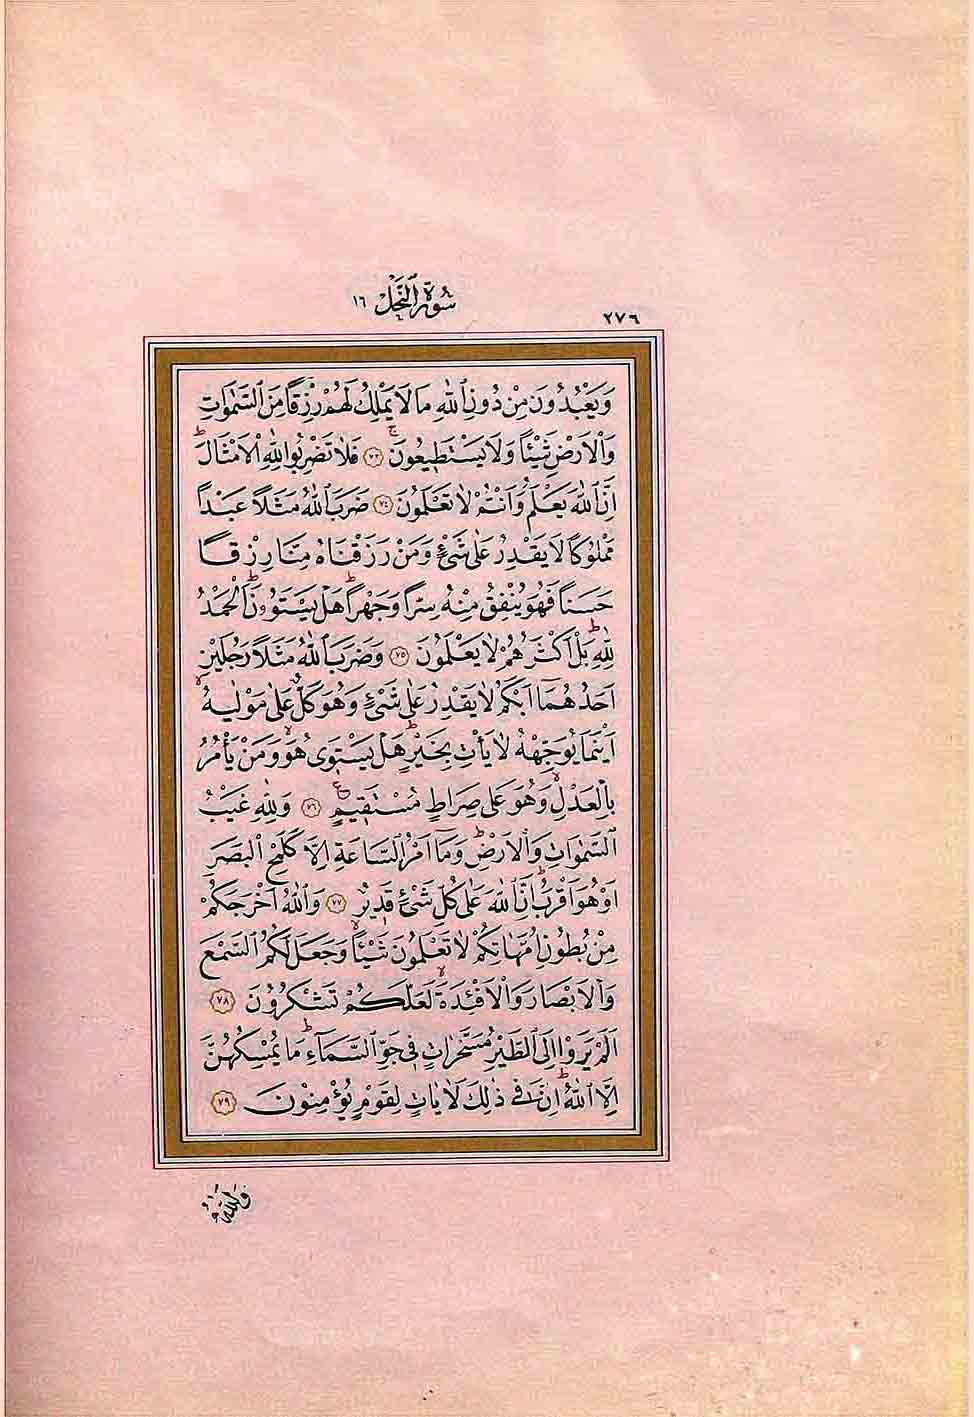 سُورَةُ النَّحْلِ ١٦
٢٧٦
وَيَعْبُدُونَ مِنْ دُونِ اللّٰهِ مَا لَا يَمْلِكُ لَهُمْ رِزْقًا مِنَ السَّمٰوَاتِ
وَالْاَرْضِ شَيْئًا وَلَا يَسْتَطِيعُونَۚ ﴿٧٣﴾ فَلَا تَضْرِبُوا لِلّٰهِ الْاَمْثَالَۜ
اِنَّ اللّٰهَ يَعْلَمُ وَاَنْتُمْ لَا تَعْلَمُونَ ﴿٧٤﴾ ضَرَبَ اللّٰهُ مَثَلًا عَبْدًا
مَمْلُوكًا لَا يَقْدِرُ عَلٰى شَيْءٍ وَمَنْ رَزَقْنَاهُ مِنَّا رِزْقًا
حَسَنًا فَهُوَ يُنْفِقُ مِنْهُ سِرًّا وَجَهْرًاۜ هَلْ يَسْتَوُونَۜ اَلْحَمْدُ
لِلّٰهِۜ بَلْ اَكْثَرُهُمْ لَا يَعْلَمُونَ ﴿٧٥﴾ وَضَرَبَ اللّٰهُ مَثَلًا رَجُلَيْنِ
اَحَدُهُمَٓا اَبْكَمُ لَا يَقْدِرُ عَلٰى شَيْءٍ وَهُوَ كَلٌّ عَلٰى مَوْلٰيهُۙ
اَيْنَمَا يُوَجِّهْهُ لَا يَأْتِ بِخَيْرٍۜ هَلْ يَسْتَوٖي هُوَۙ وَمَنْ يَأْمُرُ
بِالْعَدْلِۙ وَهُوَ عَلٰى صِرَاطٍ مُسْتَقٖيمٍ ﴿٧٦﴾ وَلِلّٰهِ غَيْبُ
السَّمٰوَاتِ وَالْاَرْضِۜ وَمَٓا اَمْرُ السَّاعَةِ اِلَّا كَلَمْحِ الْبَصَرِ
اَوْ هُوَ اَقْرَبُۜ اِنَّ اللّٰهَ عَلٰى كُلِّ شَيْءٍ قَدٖيرٌ ﴿٧٧﴾ وَاللّٰهُ اَخْرَجَكُمْ
مِنْ بُطُونِ اُمَّهَاتِكُمْ لَا تَعْلَمُونَ شَيْئًاۙ وَجَعَلَ لَكُمُ السَّمْعَ
وَالْاَبْصَارَ وَالْاَفْـِٔدَةَۙ لَعَلَّكُمْ تَشْكُرُونَ ﴿٧٨﴾
اَلَمْ يَرَوْا اِلَى الطَّيْرِ مُسَخَّرَاتٍ فٖي جَوِّ السَّمَٓاءِۜ مَا يُمْسِكُهُنَّ
اِلَّا اللّٰهُۜ اِنَّ فٖي ذٰلِكَ لَاٰيَاتٍ لِقَوْمٍ يُؤْمِنُونَ ﴿٧٩﴾
وَاللّٰهُ